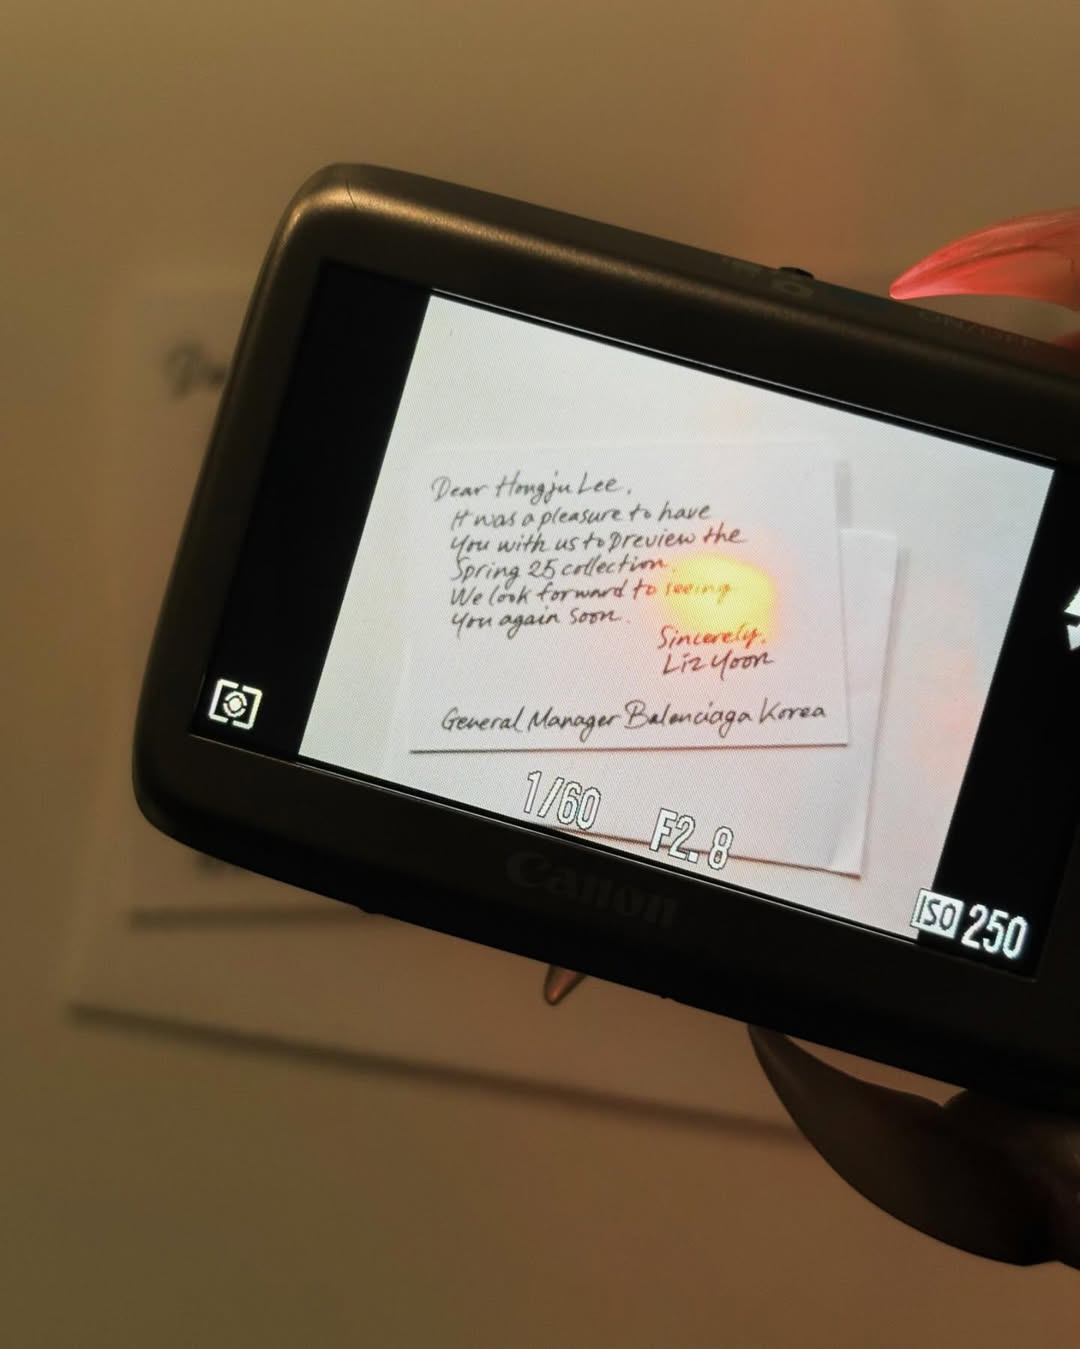 ON/OFF
Dear Hongju Lee,
It was a pleasure to have
You with us to Preview the
Spring 25 collection.
We look forward to seeing
You again soon.
Sincerely,
Liz Yoon
General Manager Balenciaga Korea
1/60 F2.8
ISO 250
Canon